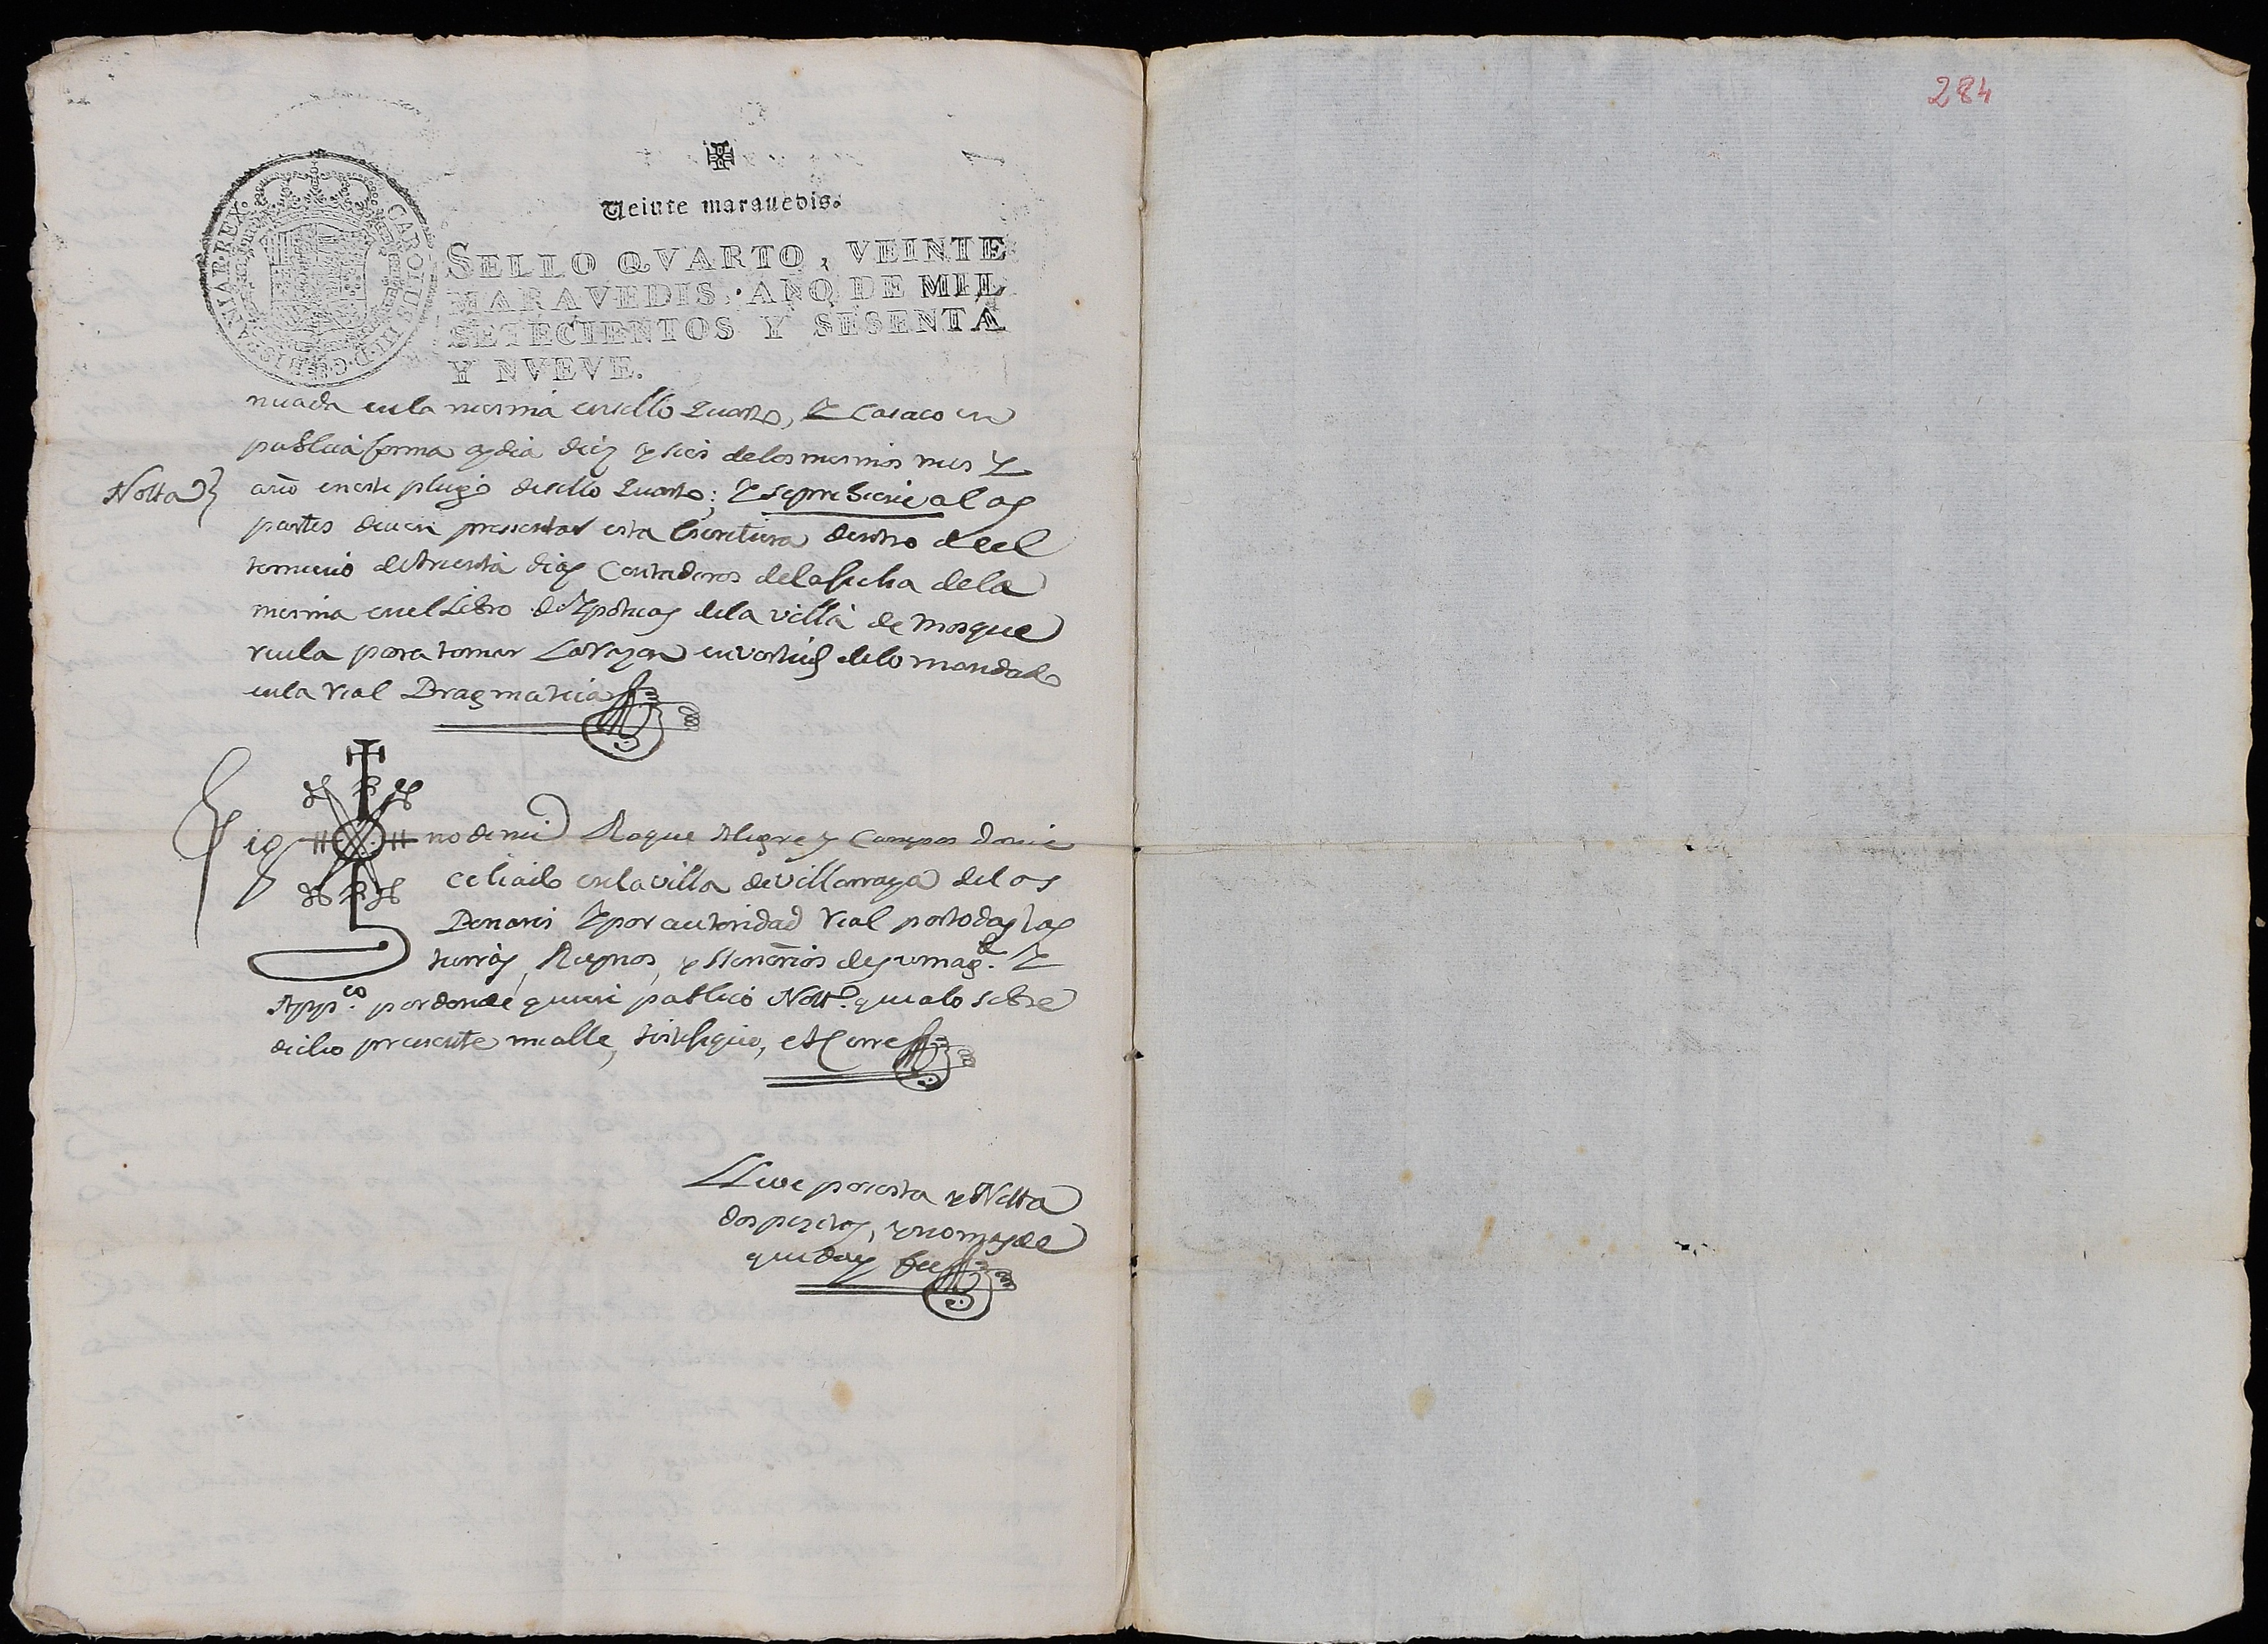 284
Veinte maravedis.
CAROLUS III D.G. HISPANIAR. REX
SELLO QVARTO, VEINTE
MARAVEDIS, AÑO DE MIL
SETECIENTOS Y SESENTA
Y NVEVE.
nuada en la mesma en sello Quarto, Y la saco en
publica forma oy dia diez y seis de los mesmos mes Y
Notta año en este pliego de sello Quarto; Y se prebiene a las
partes deven presentar esta Escritura dentro de el
termino de treinta dias Contaderos de la fecha de la
mesma en el Libro de Ypotecas de la villa de Mosque
ruela para tomar La Razon en virtud de lo mandado
en la real Pragmatica
Sig no de mi Roque Alegre y Campos domi
ciliado en la villa de Villarroya de los
Pinares Y por autoridad real por todas las
tierras, Reynos, y Señorios de su mag.d Y
App.co por donde quiere publico Nott.o que a lo sobre
dicho presente me alle, testifique, et Cerre
LLeve por esta y Notta
dos pesetas, y no mas de
que doy fee